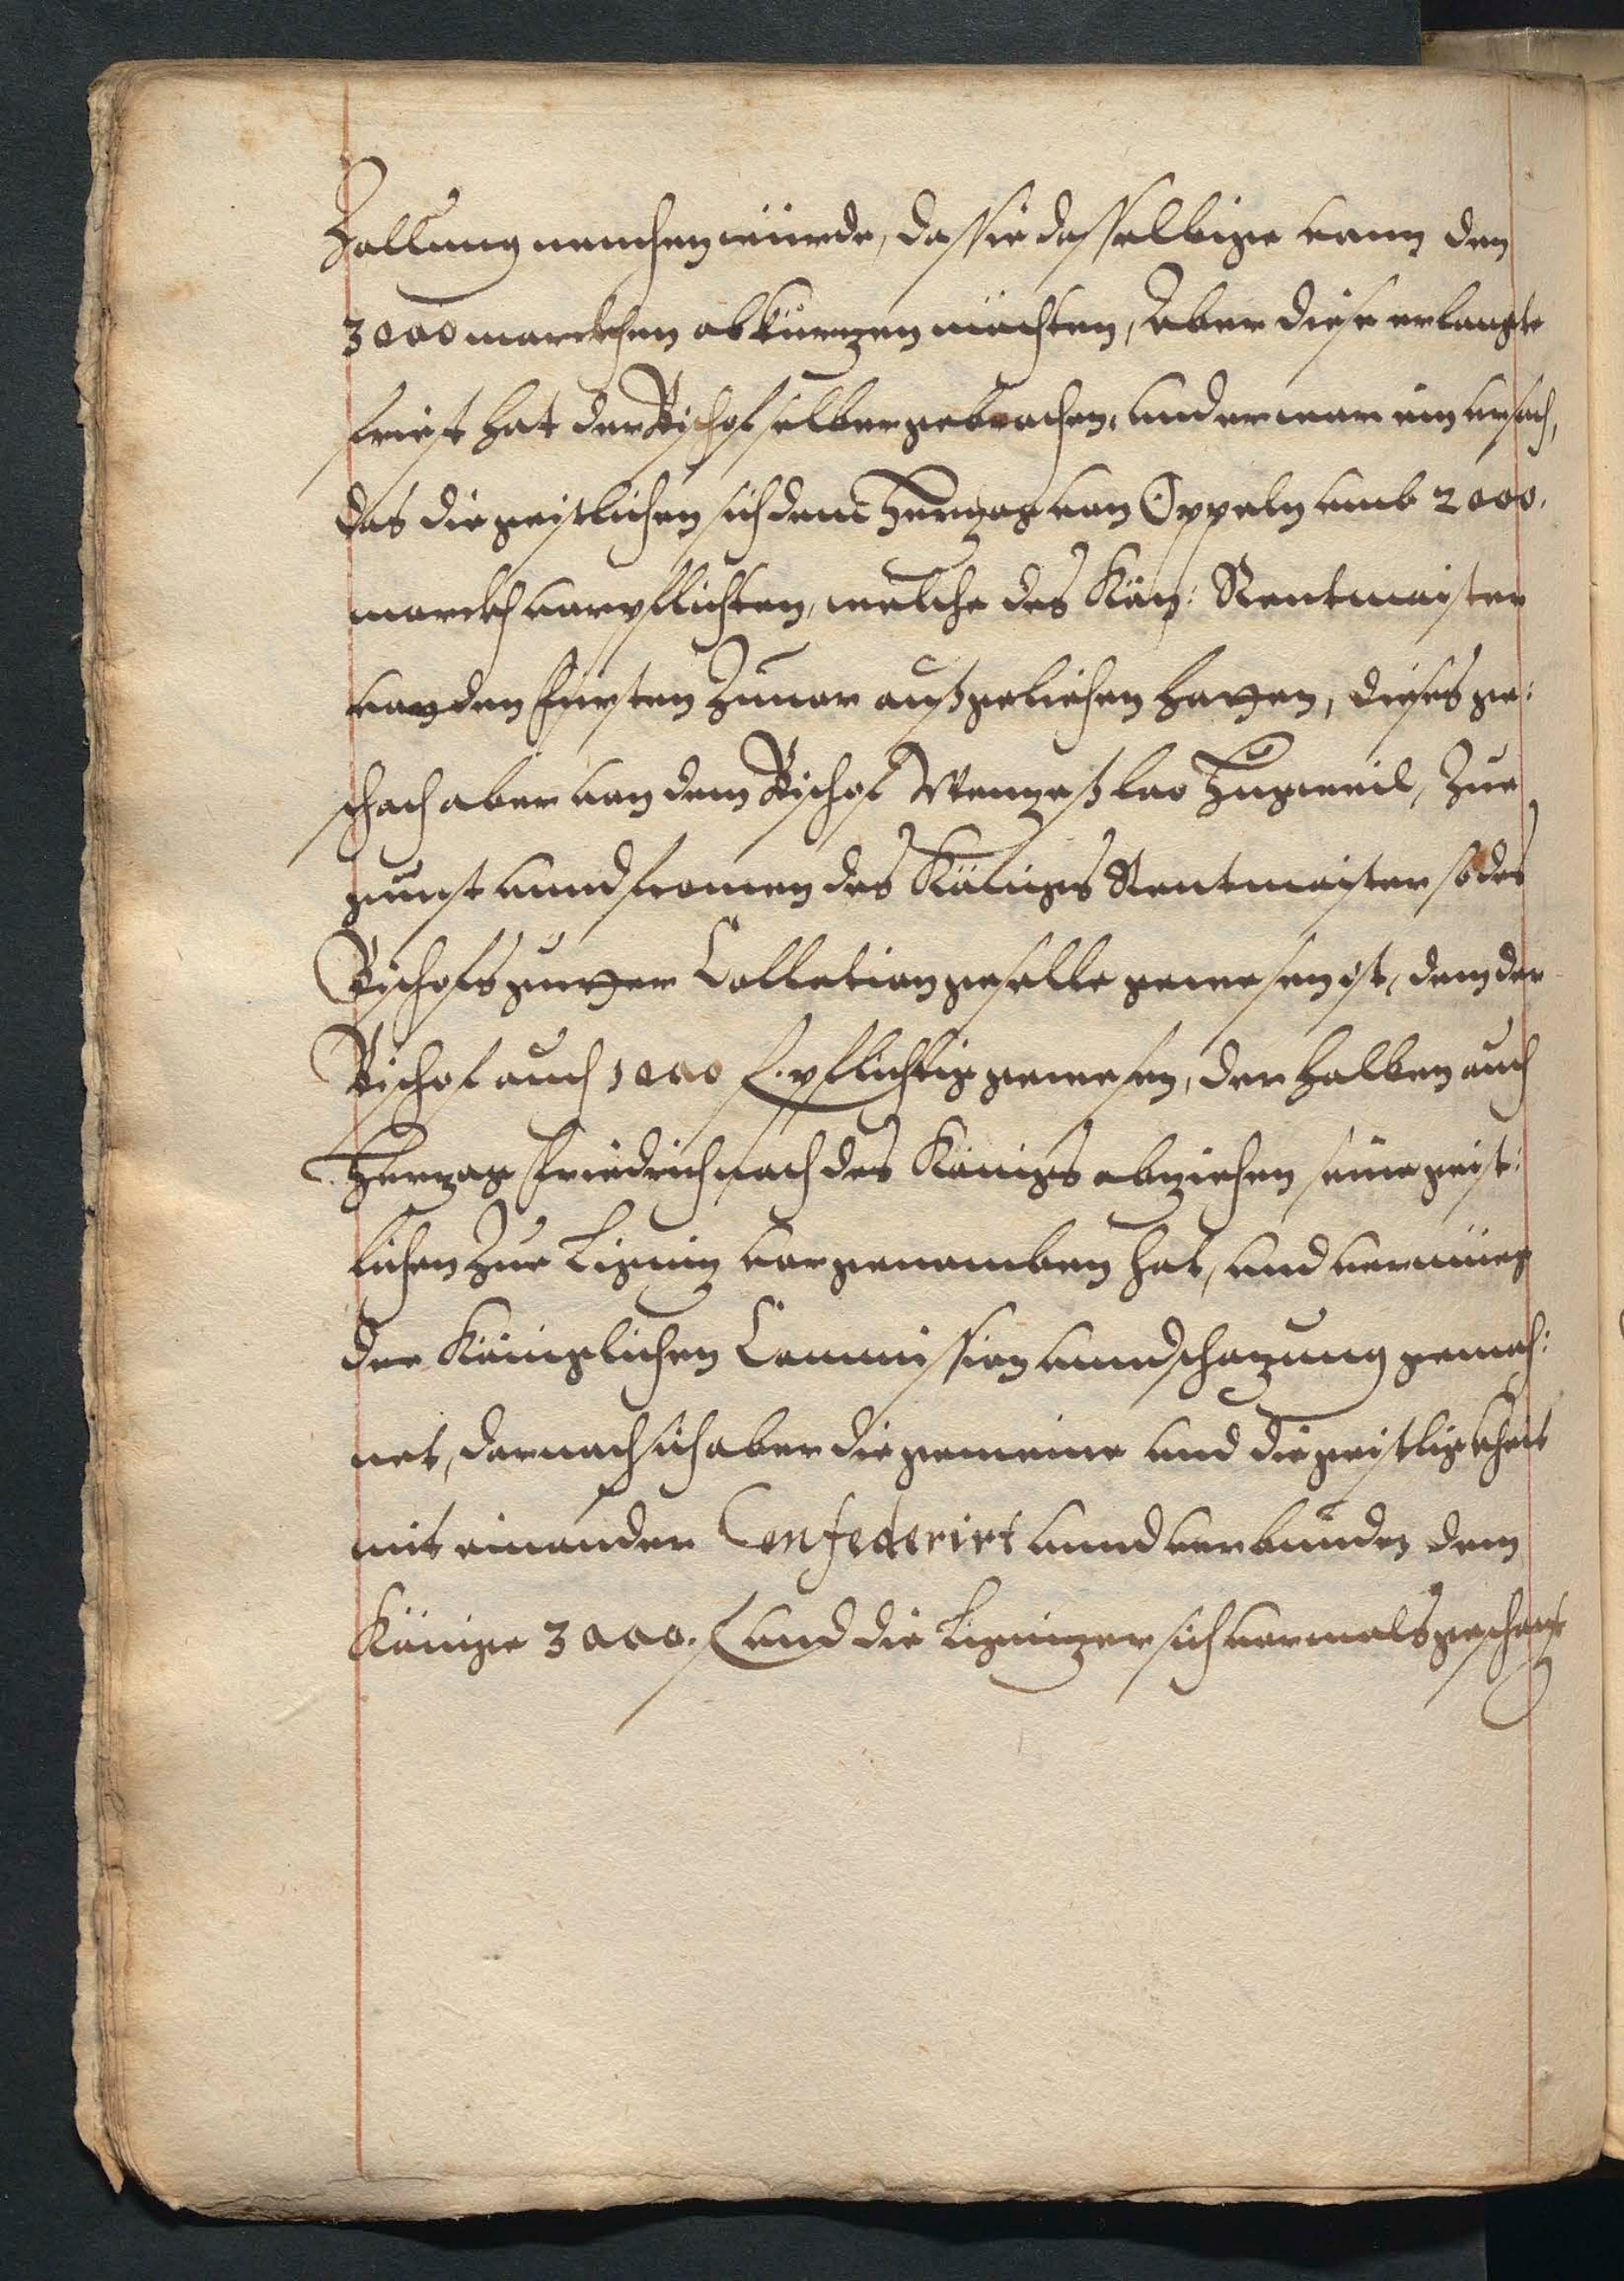 Zallung machen würde, das sie dasselbige vonn den
3000 marckhen abkürtzen möchten, Aber diese erlangte
frist hat der Bischof selber gebrochen, und er war ein ursach,
das die geistlichen sich dem Hertzog von Oppeln umb 2000.
marckh verpflichten, welche des Kön: Rentmaister
von den Fürsten Zuvor außgeliehen hatten, dieses ge:
schach aber von dem Bischof Wentzeßlao Zugweil, Zue
gunst unnd fromen des Königs Rentmaister so des
Bischofs gutter Collation geselle gewesen ist, dem der
Bischof auch 1000 f. pflichtig gewesen, derhalben auch
Hertzog Friedrich nach des Königs abziehen seine geist:
lichen Zue Lignitz vorgenomben hat, und vermüeg
der Königlichen Commission unnd schatzung gemah:
net, darnach sich aber die gemeine und die geistligkheit
mit einander Confederirt unnd verbunden dem
Könige 3000. f und die Lignitzer sich vormals geschatzt